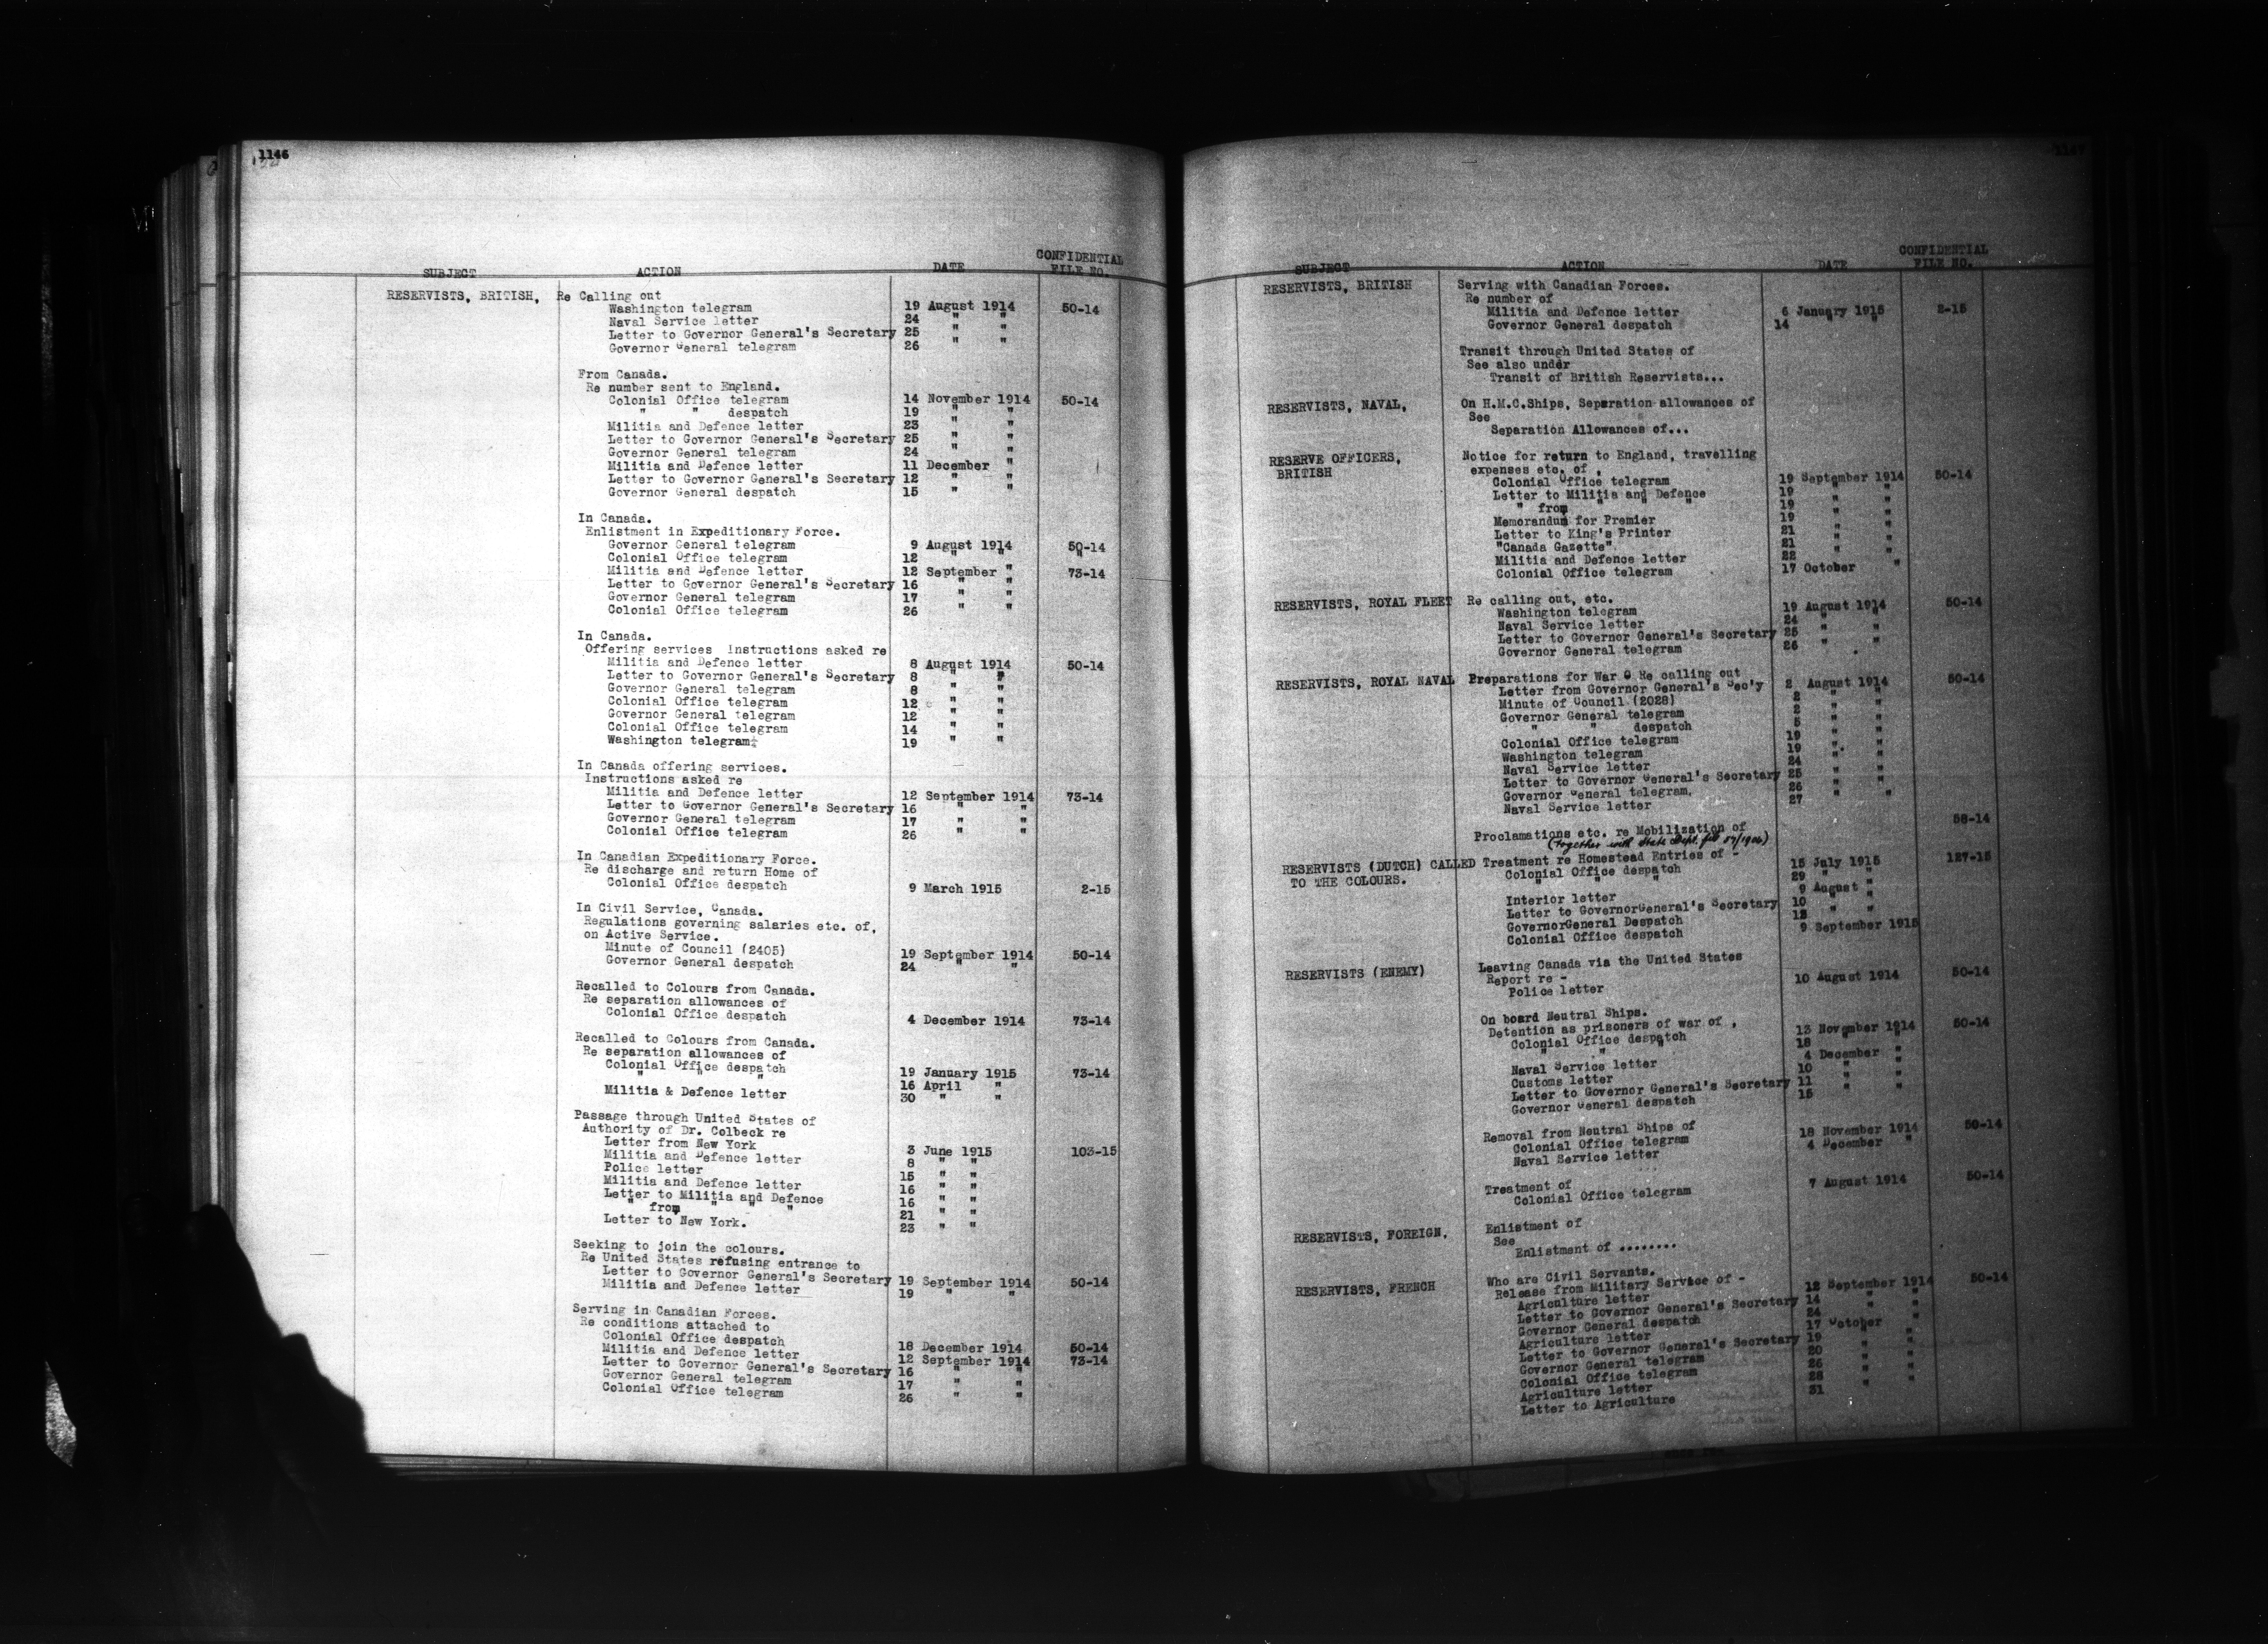 1146
SUBJECT ACTION DATE CONFIDENTIAL FILE NO.
RESERVISTS, BRITISH, Re Calling out
Washington telegram 19 August 1914 50-14
Naval Service letter 24 " "
Letter to Governor General's Secretary 25 " "
Governor General telegram 26 " "
From Canada.
Re number sent to England.
Colonial Office telegram 14 November 1914 50-14
" " despatch 19 " "
Militia and Defence letter 23 " "
Letter to Governor General's Secretary 25 " "
Governor General telegram 24 " "
Militia and Defence letter 11 December "
Letter to Governor General's Secretary 12 " "
Governor General despatch 15 " "
In Canada.
Enlistment in Expeditionary Force.
Governor General telegram 9 August 1914 50-14
Colonial Office telegram 12 " " "
Militia and Defence letter 12 September " 73-14
Letter to Governor General's Secretary 16 " "
Governor General telegram 17 " "
Colonial Office telegram 26 " "
In Canada.
Offering services Instructions asked re
Militia and Defence letter 8 August 1914 50-14
Letter to Governor General's Secretary 8 " "
Governor General telegram 8 " "
Colonial Office telegram 12 " "
Governor General telegram 12 " "
Colonial Office telegram 14 " "
Washington telegram 19 " "
In Canada offering services.
Instructions asked re
Militia and Defence letter 12 September 1914 73-14
Letter to Governor General's Secretary 16 " "
Governor General telegram 17 " "
Colonial Office telegram 26 " "
In Canadian Expeditionary Force.
Re discharge and return Home of
Colonial Office despatch 9 March 1915 2-15
In Civil Service, Canada.
Regulations governing salaries etc. of,
on Active Service.
Minute of Council (2405) 19 September 1914 50-14
Governor General despatch 24 " "
Recalled to Colours from Canada.
Re separation allowances of
Colonial Office despatch 4 December 1914 73-14
Recalled to Colours from Canada.
Re separation allowances of
Colonial Office despatch 19 January 1915 73-14
" " " 16 April "
Militia & Defence letter 30 " "
Passage through United States of
Authority of Dr. Colbeck re
Letter from New York 3 June 1915 103-15
Militia and Defence letter 8 " "
Police letter 15 " "
Militia and Defence letter 16 " "
Letter to Militia and Defence 16 " "
" from " " " 21 " "
Letter to New York. 23 " "
Seeking to join the colours.
Re United States refusing entrance to
Letter to Governor General's Secretary 19 September 1914 50-14
Militia and Defence letter 19 " "
Serving in Canadian Forces.
Re conditions attached to
Colonial Office despatch 18 December 1914 50-14
Militia and Defence letter 12 September 1914 73-14
Letter to Governor General's Secretary 16 " "
Governor General telegram 17 " "
Colonial Office telegram 26 " "
1147
SUBJECT ACTION DATE CONFIDENTIAL FILE NO.
RESERVISTS, BRITISH Serving with Canadian Forces.
Re number of
Militia and Defence letter 6 January 1915 2-15
Governor General despatch 14 " "
Transit through United States of
See also under
Transit of British Reservists...
RESERVISTS, NAVAL, On H.M.C.Ships, Separation allowances of
See
Separation Allowances of...
RESERVE OFFICERS, Notice for return to England, travelling
BRITISH expenses etc. of ,
Colonial Office telegram 19 September 1914 50-14
Letter to Militia and Defence 19 " "
" from " " " 19 " "
Memorandum for Premier 19 " "
Letter to King's Printer 21 " "
"Canada Gazette" 21 " "
Militia and Defence letter 22 " "
Colonial Office telegram 17 October "
RESERVISTS, ROYAL FLEET Re calling out, etc.
Washington telegram 19 August 1914 50-14
Naval Service letter 24 " "
Letter to Governor General's Secretary 25 " "
Governor General telegram 26 " "
RESERVISTS, ROYAL NAVAL Preparations for War Re calling out
Letter from Governor General's Sec'y 2 August 1914 50-14
Minute of Council (2028) 2 " "
Governor General telegram 2 " "
" " despatch 5 " "
Colonial Office telegram 19 " "
Washington telegram 19 " "
Naval Service letter 24 " "
Letter to Governor General's Secretary 25 " "
Governor General telegram. 26 " "
Naval Service letter 27 " "
Proclamations etc. re Mobilization of 58-14
(together with State Dept. file 57/1906)
RESERVISTS (DUTCH) CALLED Treatment re Homestead Entries of -
TO THE COLOURS. Colonial Office despatch 15 July 1915 127-15
" " " 29 " "
Interior letter 9 August "
Letter to GovernorGeneral's Secretary 10 " "
GovernorGeneral Despatch 12 " "
Colonial Office despatch 9 September 1915
RESERVISTS (ENEMY) Leaving Canada via the United States
Report re -
Police letter 10 August 1914 50-14
On board Neutral Ships.
Detention as prisoners of war of ,
Colonial Office despatch 13 November 1914 50-14
" " " 18 " "
Naval Service letter 4 December "
Customs letter 10 " "
Letter to Governor General's Secretary 11 " "
Governor General despatch 15 " "
Removal from Neutral Ships of
Colonial Office telegram 18 November 1914 50-14
Naval Service letter 4 December "
Treatment of
Colonial Office telegram 7 August 1914 50-14
RESERVISTS, FOREIGN. Enlistment of
See
Enlistment of ........
RESERVISTS, FRENCH Who are Civil Servants.
Release from Military Service of -
Agriculture letter 12 September 1914 50-14
Letter to Governor General's Secretary 14 " "
Governor General despatch 24 " "
Agriculture letter 17 October "
Letter to Governor General's Secretary 19 " "
Governor General telegram 20 " "
Colonial Office telegram 26 " "
Agriculture letter 28 " "
Letter to Agriculture 31 " "